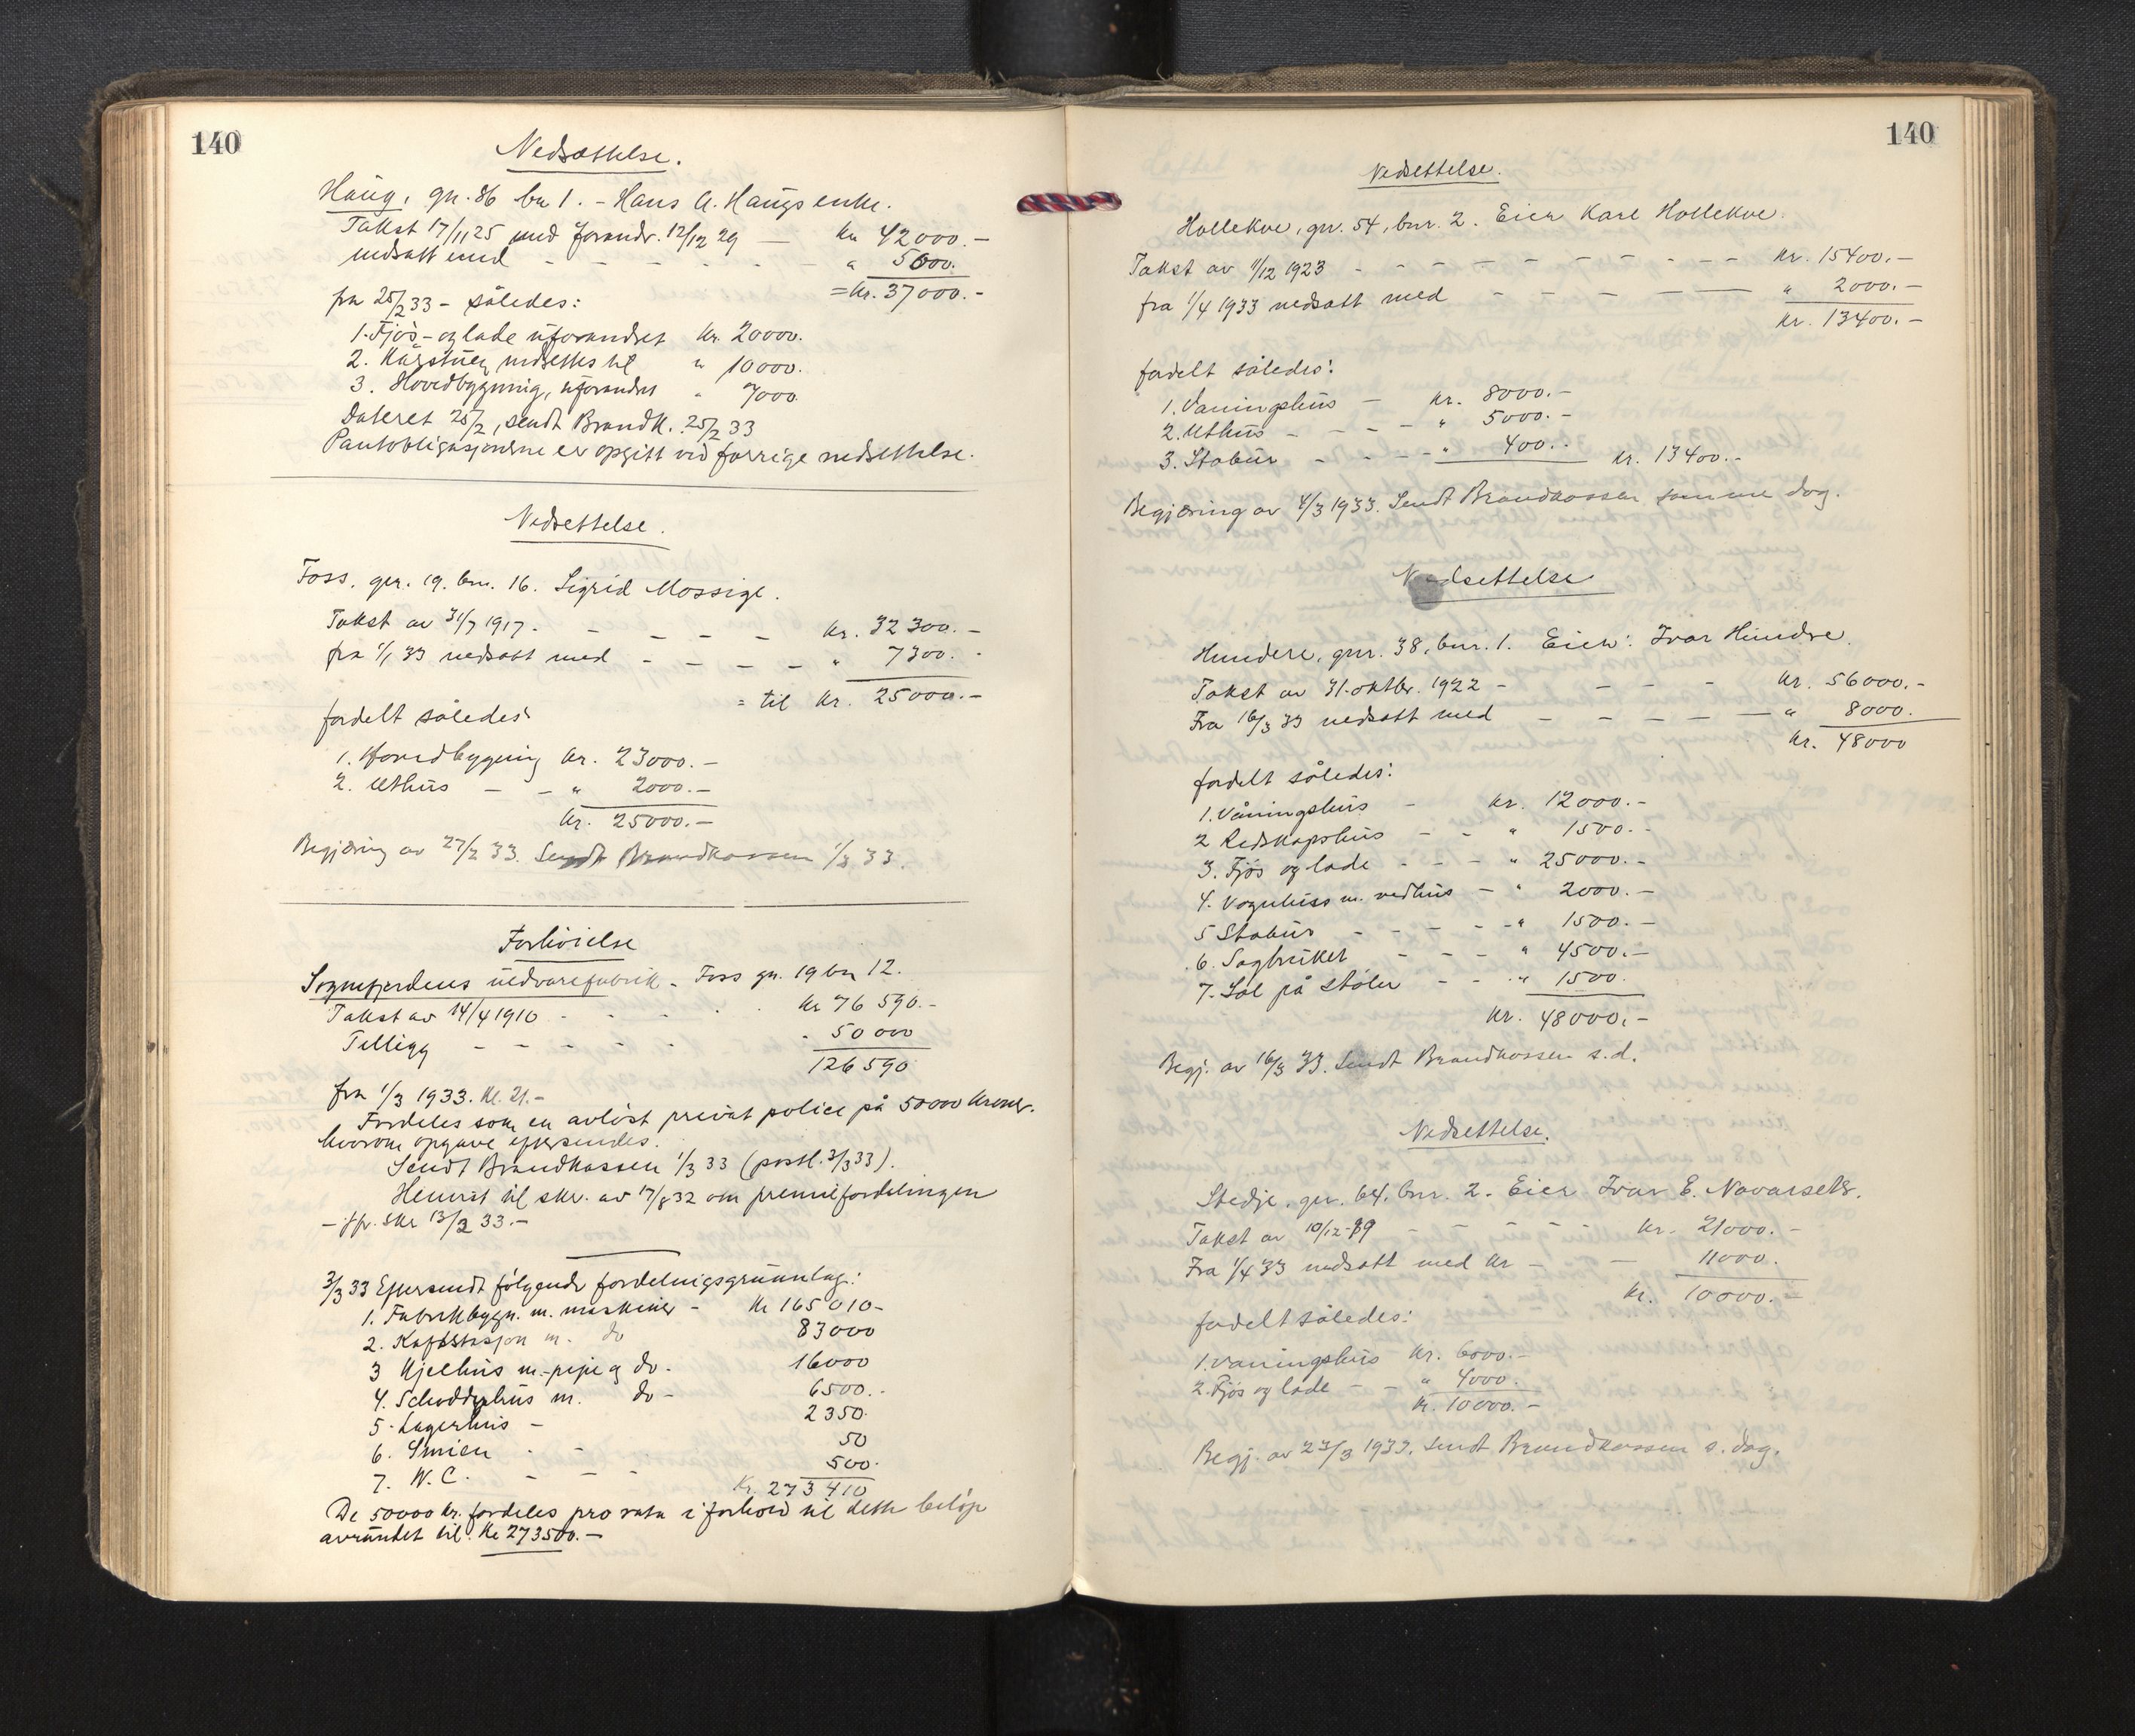 140
Nedsættelse.
Haug, gn. 86 bn 1. - Hans A. Haugs enke.
Takst 17/11 25 med forandr. 12/12 29 — kr 42000.-
nedsatt med - - - - - " 5000.
= kr. 37000.-
fra 25/2 33 - således:
1. Fjøs- og lade uforandret kr. 20000.
2. Kårstuen nedsettes til " 10000.
3. Hovedbygning, uforandret " 7000.
Dateret 25/2, sendt Brandk. 25/2 33
Pantobligasjonene er opgitt ved forrige nedsettelse.
Nedsettelse.
Foss, gnr. 19. bnr. 16. Sigrid Mossige.
Takst av 31/7 1917. - - - - kr. 32300.-
fra 1/1 33 nedsatt med - - - - " 7300.-
= til kr. 25000.-
fordelt således:
1. Hovedbygning kr. 23000.-
2. Uthus - - " 2000.-
kr. 25000.-
Begjæring av 27/2 33. Sendt Brandkassen 1/3 33.
Forhöielse
Sognefjordens uldvarefabrik - Foss gn. 19 bn 12.
Takst av 14/4 1910 - - - kr 76 590.-
Tillegg - - - - - 50 000
126 590
fra 1/3 1933. kl. 21.-
Fordeles som en avløst privat police på 50000 kroner.
hvorom opgave eftersendes.
Sendt Brandkassen 1/3 33 (postl. 3/3 33).
Henvist til skr. av 17/8 32 om premiefordelingen
- jfr. skr 13/2 33.-
3/3 33 Eftersendt følgende fordelingsgrunnlag:
1. Fabrikbygn. m. maskiner - kr 165010-
2. Kraftstasjon m. do 83000
3 Kjelhus m. pipe og do. 16000
4. Schoddyhus m. do - 6500.-
5. Lagerhus - 2350.
6. Smien - - 50
7. W.C. - - - 500.
Kr. 273410
De 50000 kr. fordeles pro rata i forhold til dette beløp
avrundet til kr 273500.-
140
Nedsettelse.
Hollekve, gnr. 54, bnr. 2. Eier Karl Hollekve.
Takst av 11/12 1923 - - - - - - - - - kr. 15400.-
fra 1/4 1933 nedsatt med - - - - - — " 2000.-
kr. 13400.-
fordelt således:
1. Vaningshus - kr. 8000.-
2. Uthus - - - - " 5000.-
3. Stabur - - - - " 400.- kr. 13400.-
Begjæring av 4/3 1933. Sendt Brandkassen samme dag.
Nedsettelse
Hundere, gnr. 38, bnr. 1. Eier: Ivar Hundre.
Takst av 31. oktbr. 1922 - - - - kr. 56000.-
Fra 16/3 33 nedsatt med - - - - — " 8000.
kr. 48000
fordelt således:
1. Våningshus - kr. 12000.-
2 Redskapshus - - " 1500.-
3. Fjøs og lade - - - " 25000.-
4. Vognhus m. vedhus - " 2000.-
5 Stabur - - - - - " 1500.-
6. Sagbruket - - - " 4500.-
7. Sel på støler - - " 1500.
kr. 48000.-
Begj. av 16/3 33. Sendt Brandkassen s.d.
Nedsettelse.
Stedje, gnr. 64, bnr. 2. Eier Ivar E. Navarsete.
Takst av 10/12-89 - - - - - kr. 21000.-
Fra 1/4 33 nedsatt med kr - - 11000.
kr. 10000.-
fordelt således:
1. Vaningshus kr. 6000.-
2. Fjøs og lade - - " 4000.
kr. 10000.-
Begj. av 23/3 1933. Sendt Brandkassen s. dag.